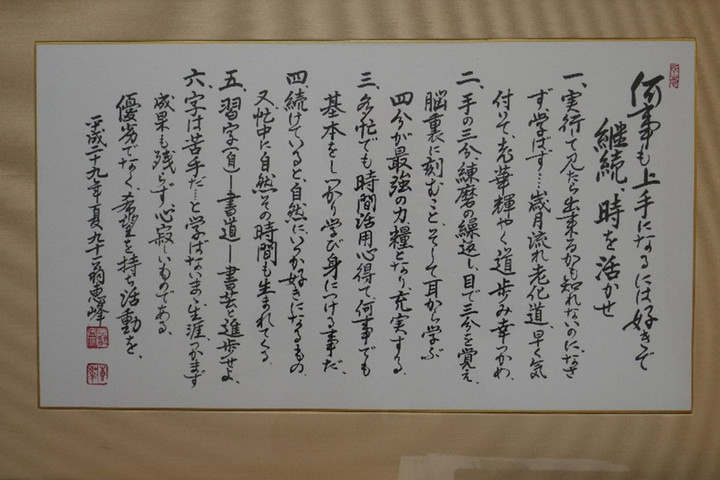 何事も上手になるには好きで
継続、時を活かせ
一、実行て見たら出来るかも知れないのになさ
ず、学ばず…歳月流れ老化道、早く気
付いて、老華輝やく道歩み幸つかめ、
二、手の三分、練磨の繰返し、目で三分を覚え、
脳裏に刻むこと、そして耳から学ぶ
四分が最強の力糧となり、充実する、
三、多忙でも時間活用心得て何事でも
基本をしっかり学び身につける事だ、
四、続けていると、自然にいつか好きになるもの、
又、忙中に自然その時間も生まれてくる、
五、習字(自)ー書道ー書芸と進歩せよ、
六、字は苦手だ…と学ばないまゝ生涯つかまず
成果も残らず、心寂しいものである、
優劣でなく、希望を持ち活動を、
平成二十九年夏九十一翁恵峰